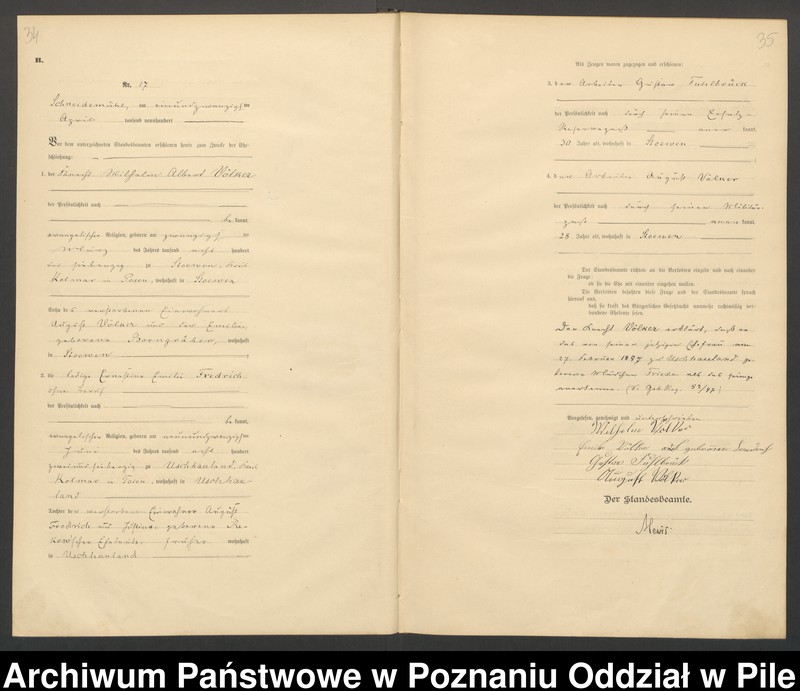 34
B.
Nr. 17
Schneidemühl, am einundzwanzigsten
April tausend neunhundert
Vor dem unterzeichneten Standesbeamten erschienen heute zum Zwecke der Ehe-
schließung:
1. der Knecht Wilhelm Albert Völker
der Persönlichkeit nach
be kannt,
evangelischer Religion, geboren am zwanzigsten
März des Jahres tausend acht hundert
siebenzig zu Stoewen, Kreis
Kolmar in Posen, wohnhaft in Stoewen
Sohn des verstorbenen Einwohners
August Völker und der Emilie,
geborene Borngräber, wohnhaft
in Stoewen
2. die ledige Ernestine Emilie Fredrich
ohne Beruf
der Persönlichkeit nach
be kannt,
evangelischer Religion, geboren am neunundzwanzigsten
Juni des Jahres tausend acht hundert
zweiundsiebenzig zu Uschhauland, Kreis
Kolmar in Posen, wohnhaft in Uschhau-
land
Tochter der verstorbenen Einwohner August
Fredrich und Justine, geborene
Eheleute, früher wohnhaft
in Uschhauland
35
Als Zeugen waren zugezogen und erschienen:
3. der Arbeiter Gustav Fuhlbrück
der Persönlichkeit nach durch seinen Ersatz-
Reservepaß aner kannt,
30 Jahre alt, wohnhaft in Stoewen
4. der Arbeiter August Völker
der Persönlichkeit nach durch seinen Militär-
paß aner kannt,
28 Jahre alt, wohnhaft in Stoewen
Der Standesbeamte richtete an die Verlobten einzeln und nach einander
die Frage:
ob sie die Ehe mit einander eingehen wollen.
Die Verlobten bejahten diese Frage und der Standesbeamte sprach
hierauf aus,
daß sie kraft des Bürgerlichen Gesetzbuchs nunmehr rechtmäßig ver-
bundene Eheleute seien.
Der Knecht Völker erklärt, daß er
das von seiner jetzigen Ehefrau am
27. Februar 1897 zu Uschhauland ge-
borene Mädchen Frieda als das seinige
anerkenne.
Vorgelesen, genehmigt und unterschrieben
Wilhelm Völker
Emilie Völker geborene Fredrich
Gustav Fuhlbrück
August Völker
Der Standesbeamte.
Archiwum Państwowe w Poznaniu Oddział w Pile